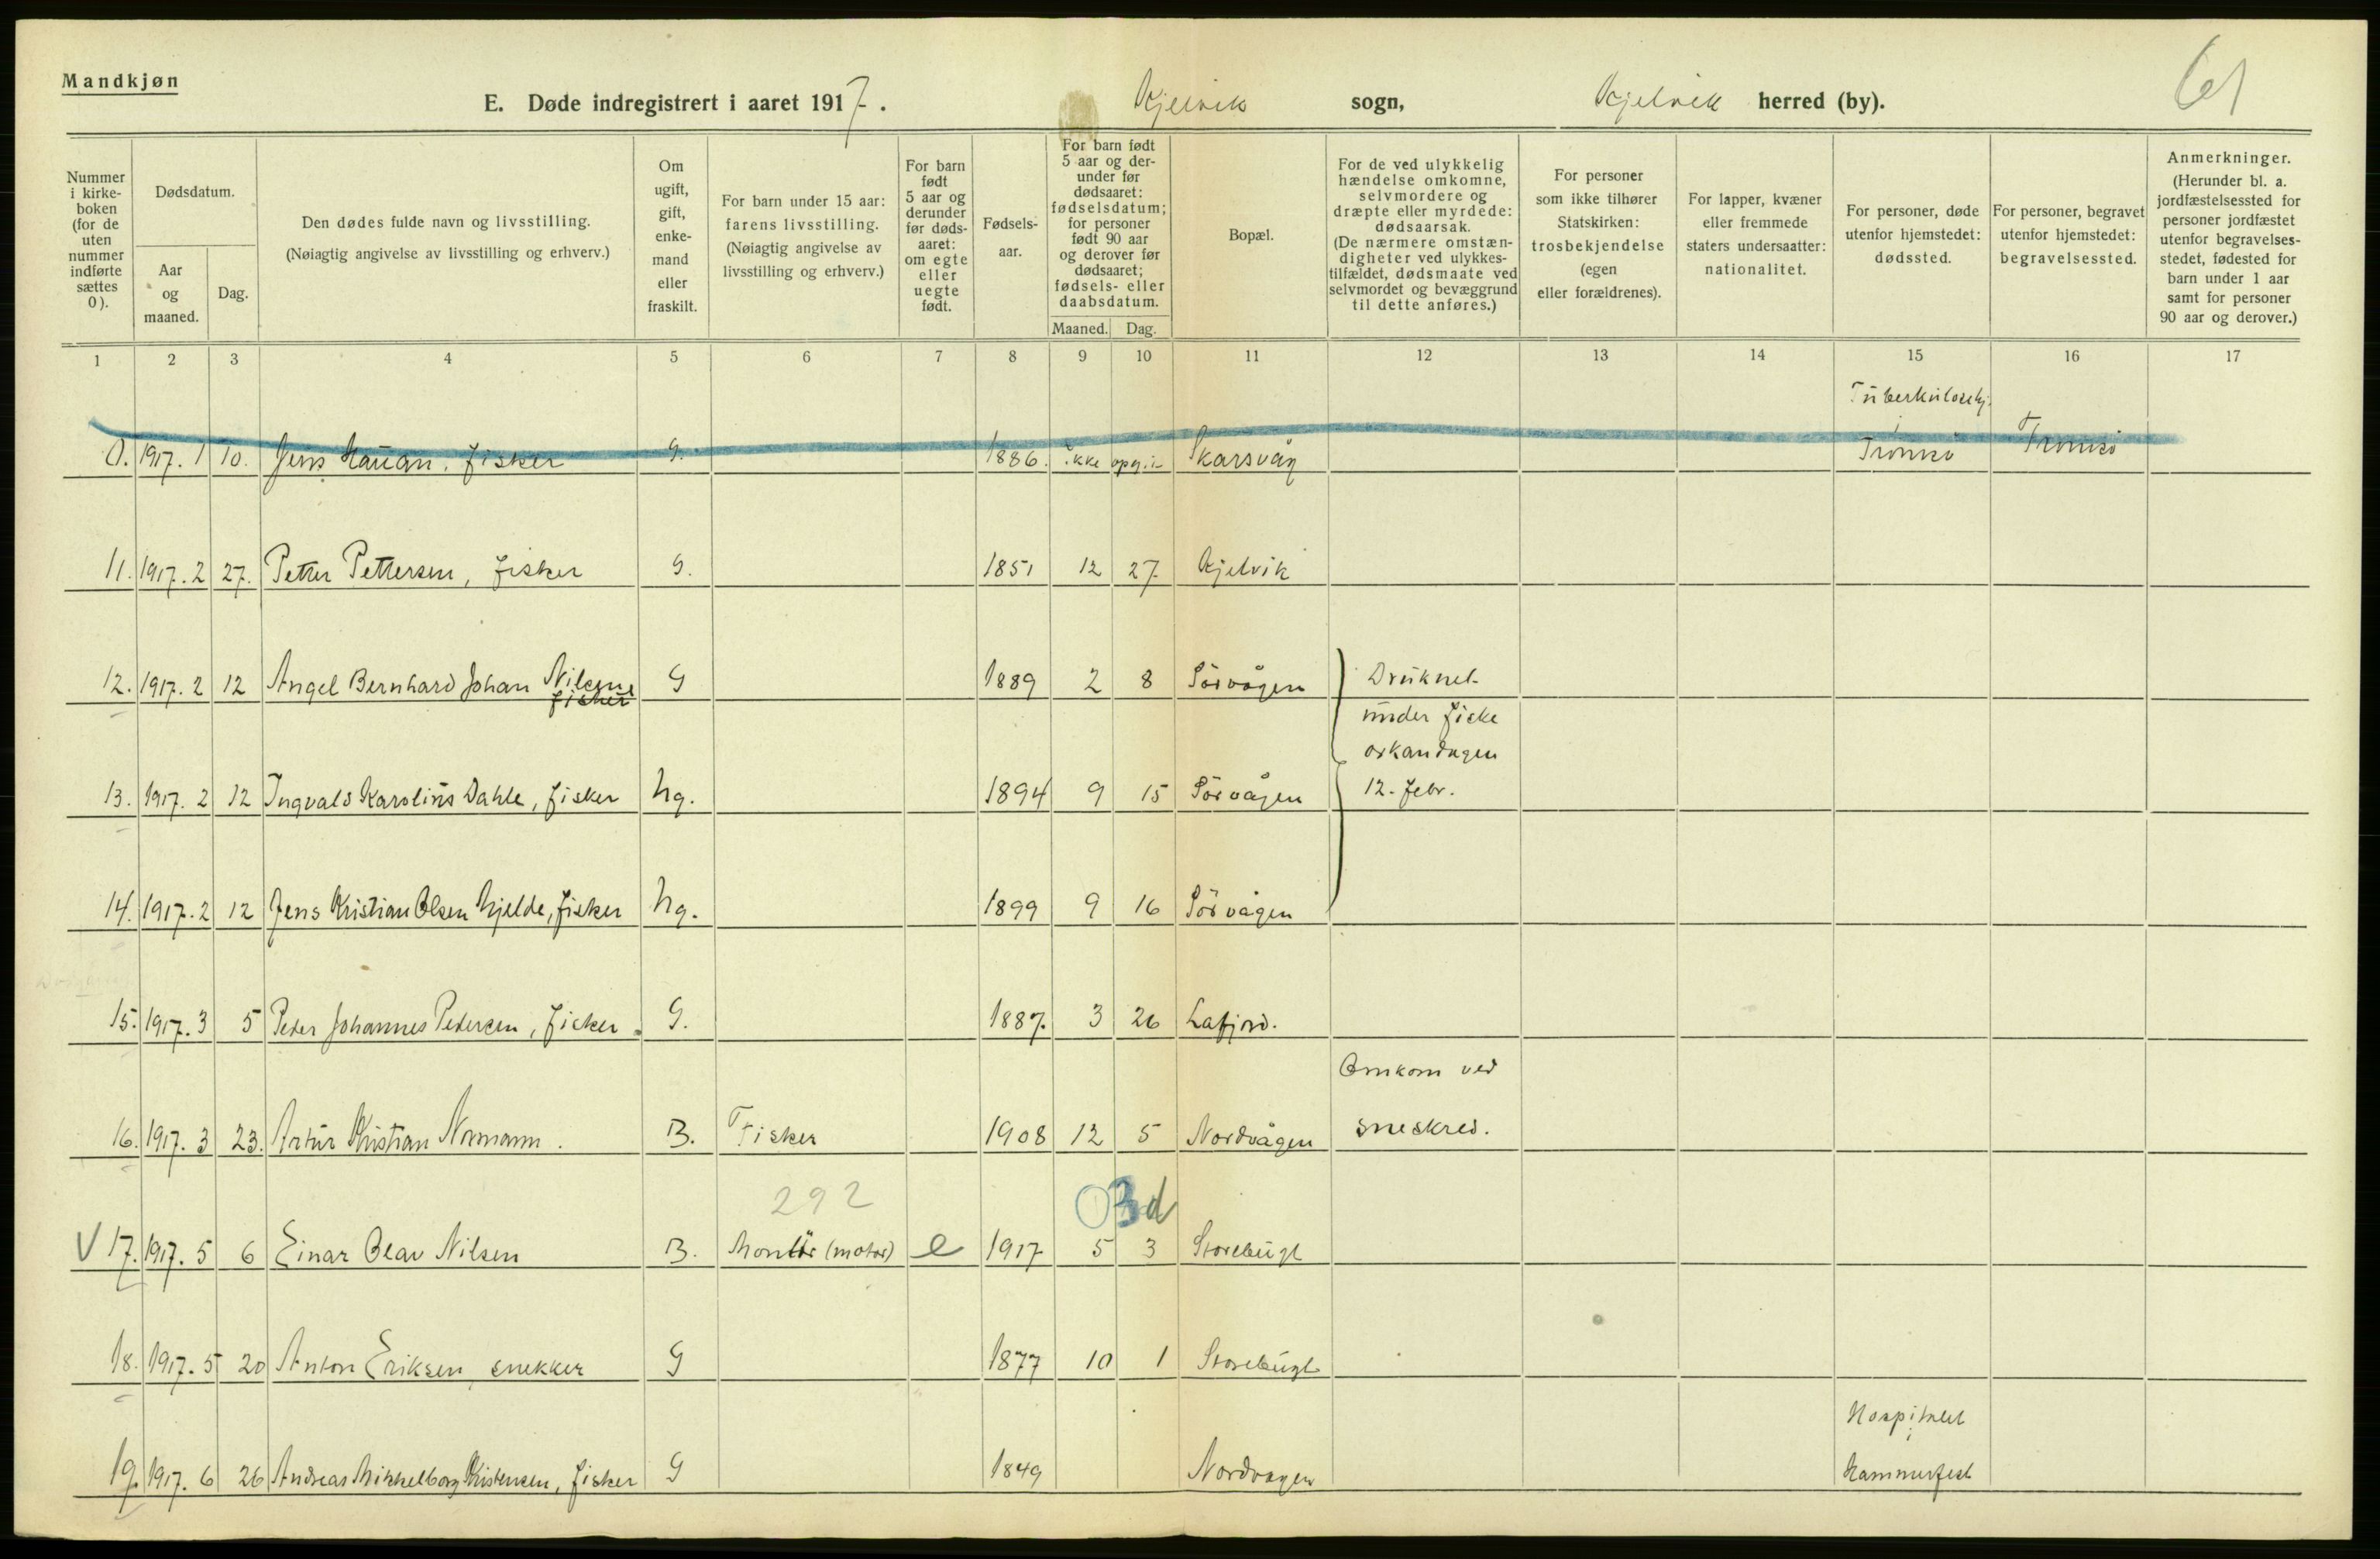 Mandkjøn
61
E. Døde indregistrert i aaret 1917. Kjelvik sogn, Kjelvik herred (by).
Nummer i kirke-boken (for de uten nummer indførte sættes 0).
Dødsdatum.
Aar og maaned.
Dag.
Den dødes fulde navn og livsstilling.
(Nøiagtig angivelse av livsstilling og erhverv.)
Om ugift, gift, enke-mand eller fraskilt.
For barn under 15 aar: farens livsstilling.
(Nøiagtig angivelse av livsstilling og erhverv.)
For barn født 5 aar og derunder før døds-aaret: om egte eller uegte født.
Fødsels-aar.
For barn født 5 aar og der-under før dødsaaret: fødselsdatum; for personer født 90 aar og derover før dødsaaret; fødsels- eller daabsdatum.
Maaned. Dag.
Bopæl.
For de ved ulykkelig hændelse omkomne, selvmordere og dræpte eller myrdede: dødsaarsak.
(De nærmere omstæn-digheter ved ulykkes-tilfældet, dødsmaate ved selvmordet og bevæggrund til dette anføres.)
For personer som ikke tilhører Statskirken: trosbekjendelse (egen eller forældrenes).
For lapper, kvæner eller fremmede staters undersaatter: nationalitet.
For personer, døde utenfor hjemstedet: dødssted.
For personer, begravet utenfor hjemstedet: begravelsessted.
Anmerkninger.
(Herunder bl. a. jordfæstelsessted for personer jordfæstet utenfor begravelses-stedet, fødested for barn under 1 aar samt for personer 90 aar og derover.)
1 2 3 4 5 6 7 8 9 10 11 12 13 14 15 16 17
0. 1917. 1 10. Jens Hauan, fisker G. 1886. ikke Skarsvåg Tromsö Tromsö
11. 1917. 2 27. Petter Pettersen, fisker G. 1851 12 27. Kjelvik
12. 1917. 2 12 Angel Bernhard Johan Nilsen, fisker G 1889 2 8 Sörvågen Druknet
under fiske
orkandagen
13. 1917. 2 12 Ingvald Karolius Dahle, fisker Ug. 1894 9 15 Sörvågen 12. febr.
14. 1917. 2 12 Jens Kristian Olsen Mjelde, fisker Ug. 1899 9 16 Sörvågen
15. 1917. 3 5 Peder Johannes Pedersen, fisker G. 1887. 3 26 Lafjord.
Omkom ved
16. 1917. 3 23. Artur Kristian Normann. B. Fisker 1908 12 5 Nordvågen sneskred.
292 0 3 d
V 17. 1917. 5 6 Einar Olav Nilsen B. Montör (motor) e 1917 5 3 Storebugt
18. 1917. 5 20 Anton Eriksen, snekker G 1877 10 1 Storebugt
Hospitalet
19. 1917. 6 26 Andreas Mikkelborg Kristensen, fisker G 1849 Nordvagen Hammerfest